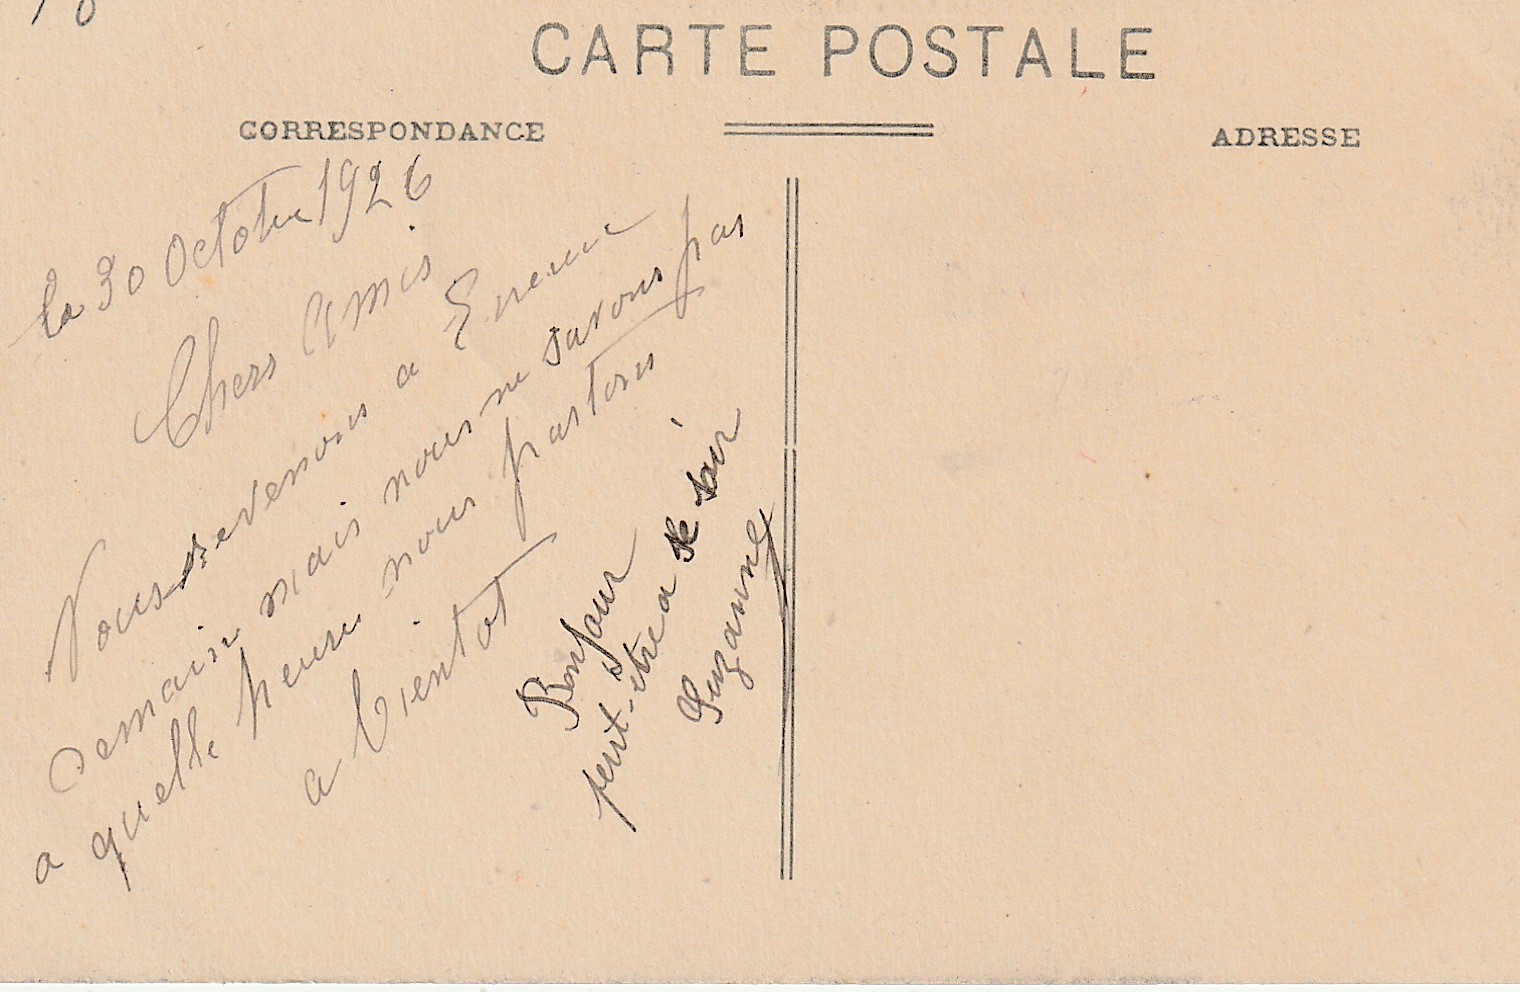 CARTE POSTALE
CORRESPONDANCE
ADRESSE
le 30 Octobre 1926
Chers Amis
Nous revenons a
demain mais nous ne savons pas
a quelle heure nous partons
a bientot
Bonjour
peut-être a ce soir
Suzanne